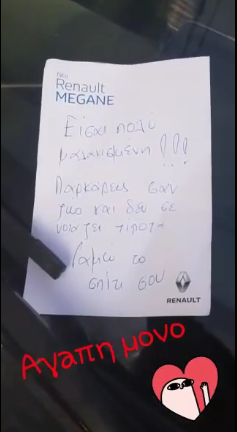 Νέο
Renault
MEGANE
Είσαι πολύ
μαλακισμένη!!!
Παρκάρεις σαν
ζώο και δεν σε
νοιάζει τίποτα
Γαμώ το
σπίτι σου
RENAULT
Αγαπη μονο